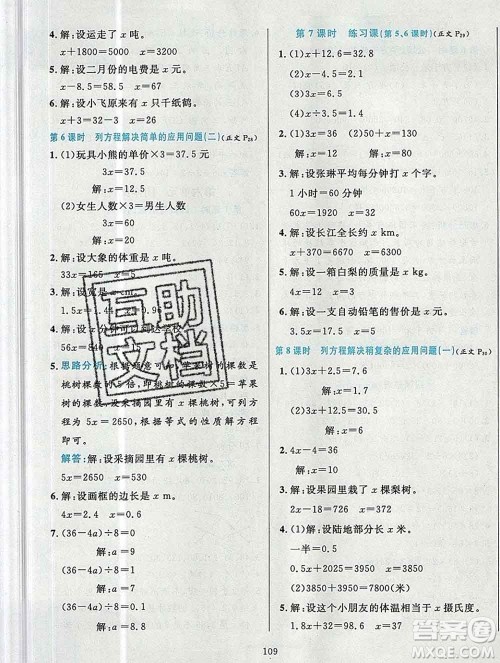 4. 解:设运走了 x 吨。
x=3780  x=5820
5. 解:设二月份的电费是 x 元。
x-8.5=58.5  x=67
6. 解:设小飞原来有 x 只千纸鹤。
x+3=32-3  x=26
第 6 课时 列方程解决简单的应用问题(二)(正文 P28)
1. (1)玩具小熊的单价×3=37.5 元
3x=37.5
解:x=12.5
(2)女生人数×3=男生人数
3x=60
解:x=20
2. 解:设大象的体重是 x 吨。
33x=165  x=5
3. 解:设宽是 x
1.5x=  x=0.96
4. 解:设 x 分钟可以到达学校。
56x=840
5. 思路分析:根据题意可知,苹果的棵数是
桃树棵数的 5 倍,即桃树棵数×5=苹果
树的棵数,设桃树有 x 棵,则可列方程
为 5x=2650,根据等式的性质解方程
即可。
解答:解:设采摘园里有 x 棵桃树。
5x=2650  x=530
6. 解:设画框的边长是 x m。
4x=2.4  x=0.6
7. (36-4a)÷8=0
解:a=9
(36-4a)÷8=1
解:a=7
第 7 课时 练习课(第 5、6 课时)(正文 P29)
1. (1)x+12.6=30
(2)3x=11.1
(3)x-32=58.6
(4)2x=67.5
(5)4x=58
2. (1)32  (2)50  (3)90
解:x=9  解:x=40
3. 解:设张琳平均每分钟打 x 个字。
1 小时=60 分  60x=4920  x=82
4. 解:设长江全长约 x km。
x+370=6670  x=6300
5. 解:设一箱白梨的质量是 x kg。
4x=72  x=18
6. 解:设一支自动铅笔的售价是 x 元。
2x=5  x=2.5
第 8 课时 列方程解决稍复杂的应用问题(一)(正文 P30)
1. (1)3x+2.5=11.5
(2)5x-12=58
(3)4x+7.5=37.5
2. 4x-4=36
解:x=10
3. 解:设果园里有 x 棵梨树。
2x-18=726  x=372
4. (1)解:设陆地部分长 x 米。
0.5x+2100=3850  x=3500
(2)3850×2+100=7800(米)
5. 解:设这个小朋友的体温是 x 摄氏度。
1.8x+32=100.4  x=38
互助
文档
109